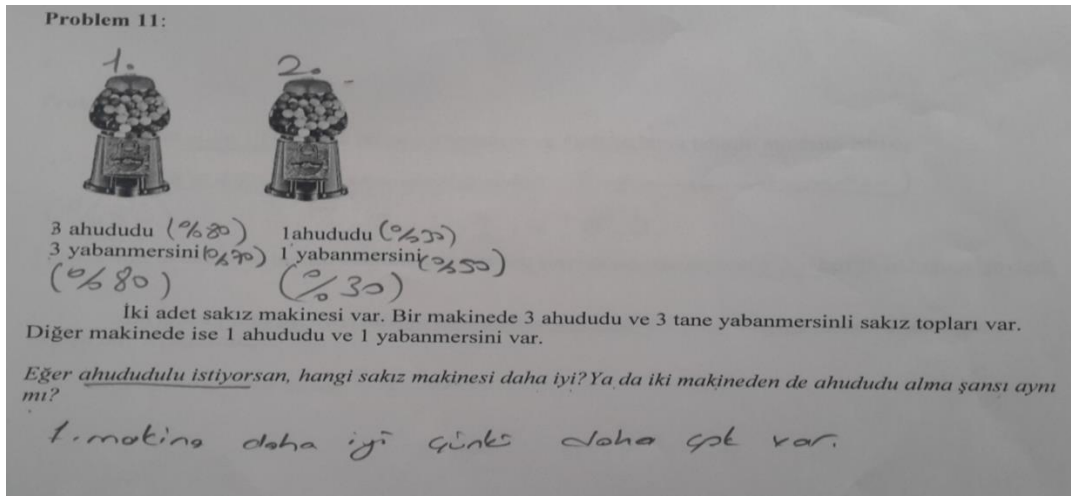 Problem 11:
1. 2.
3 ahududu (%80) 1ahududu (%30)
3 yabanmersini (%70) 1 yabanmersini (%50)
(%80) (%30)
İki adet sakız makinesi var. Bir makinede 3 ahududu ve 3 tane yabanmersinli sakız topları var.
Diğer makinede ise 1 ahududu ve 1 yabanmersini var.
Eğer ahududulu istiyorsan, hangi sakız makinesi daha iyi? Ya da iki makineden de ahududu alma şansı aynı
mı?
1. makine daha iyi çünkü daha çok var.